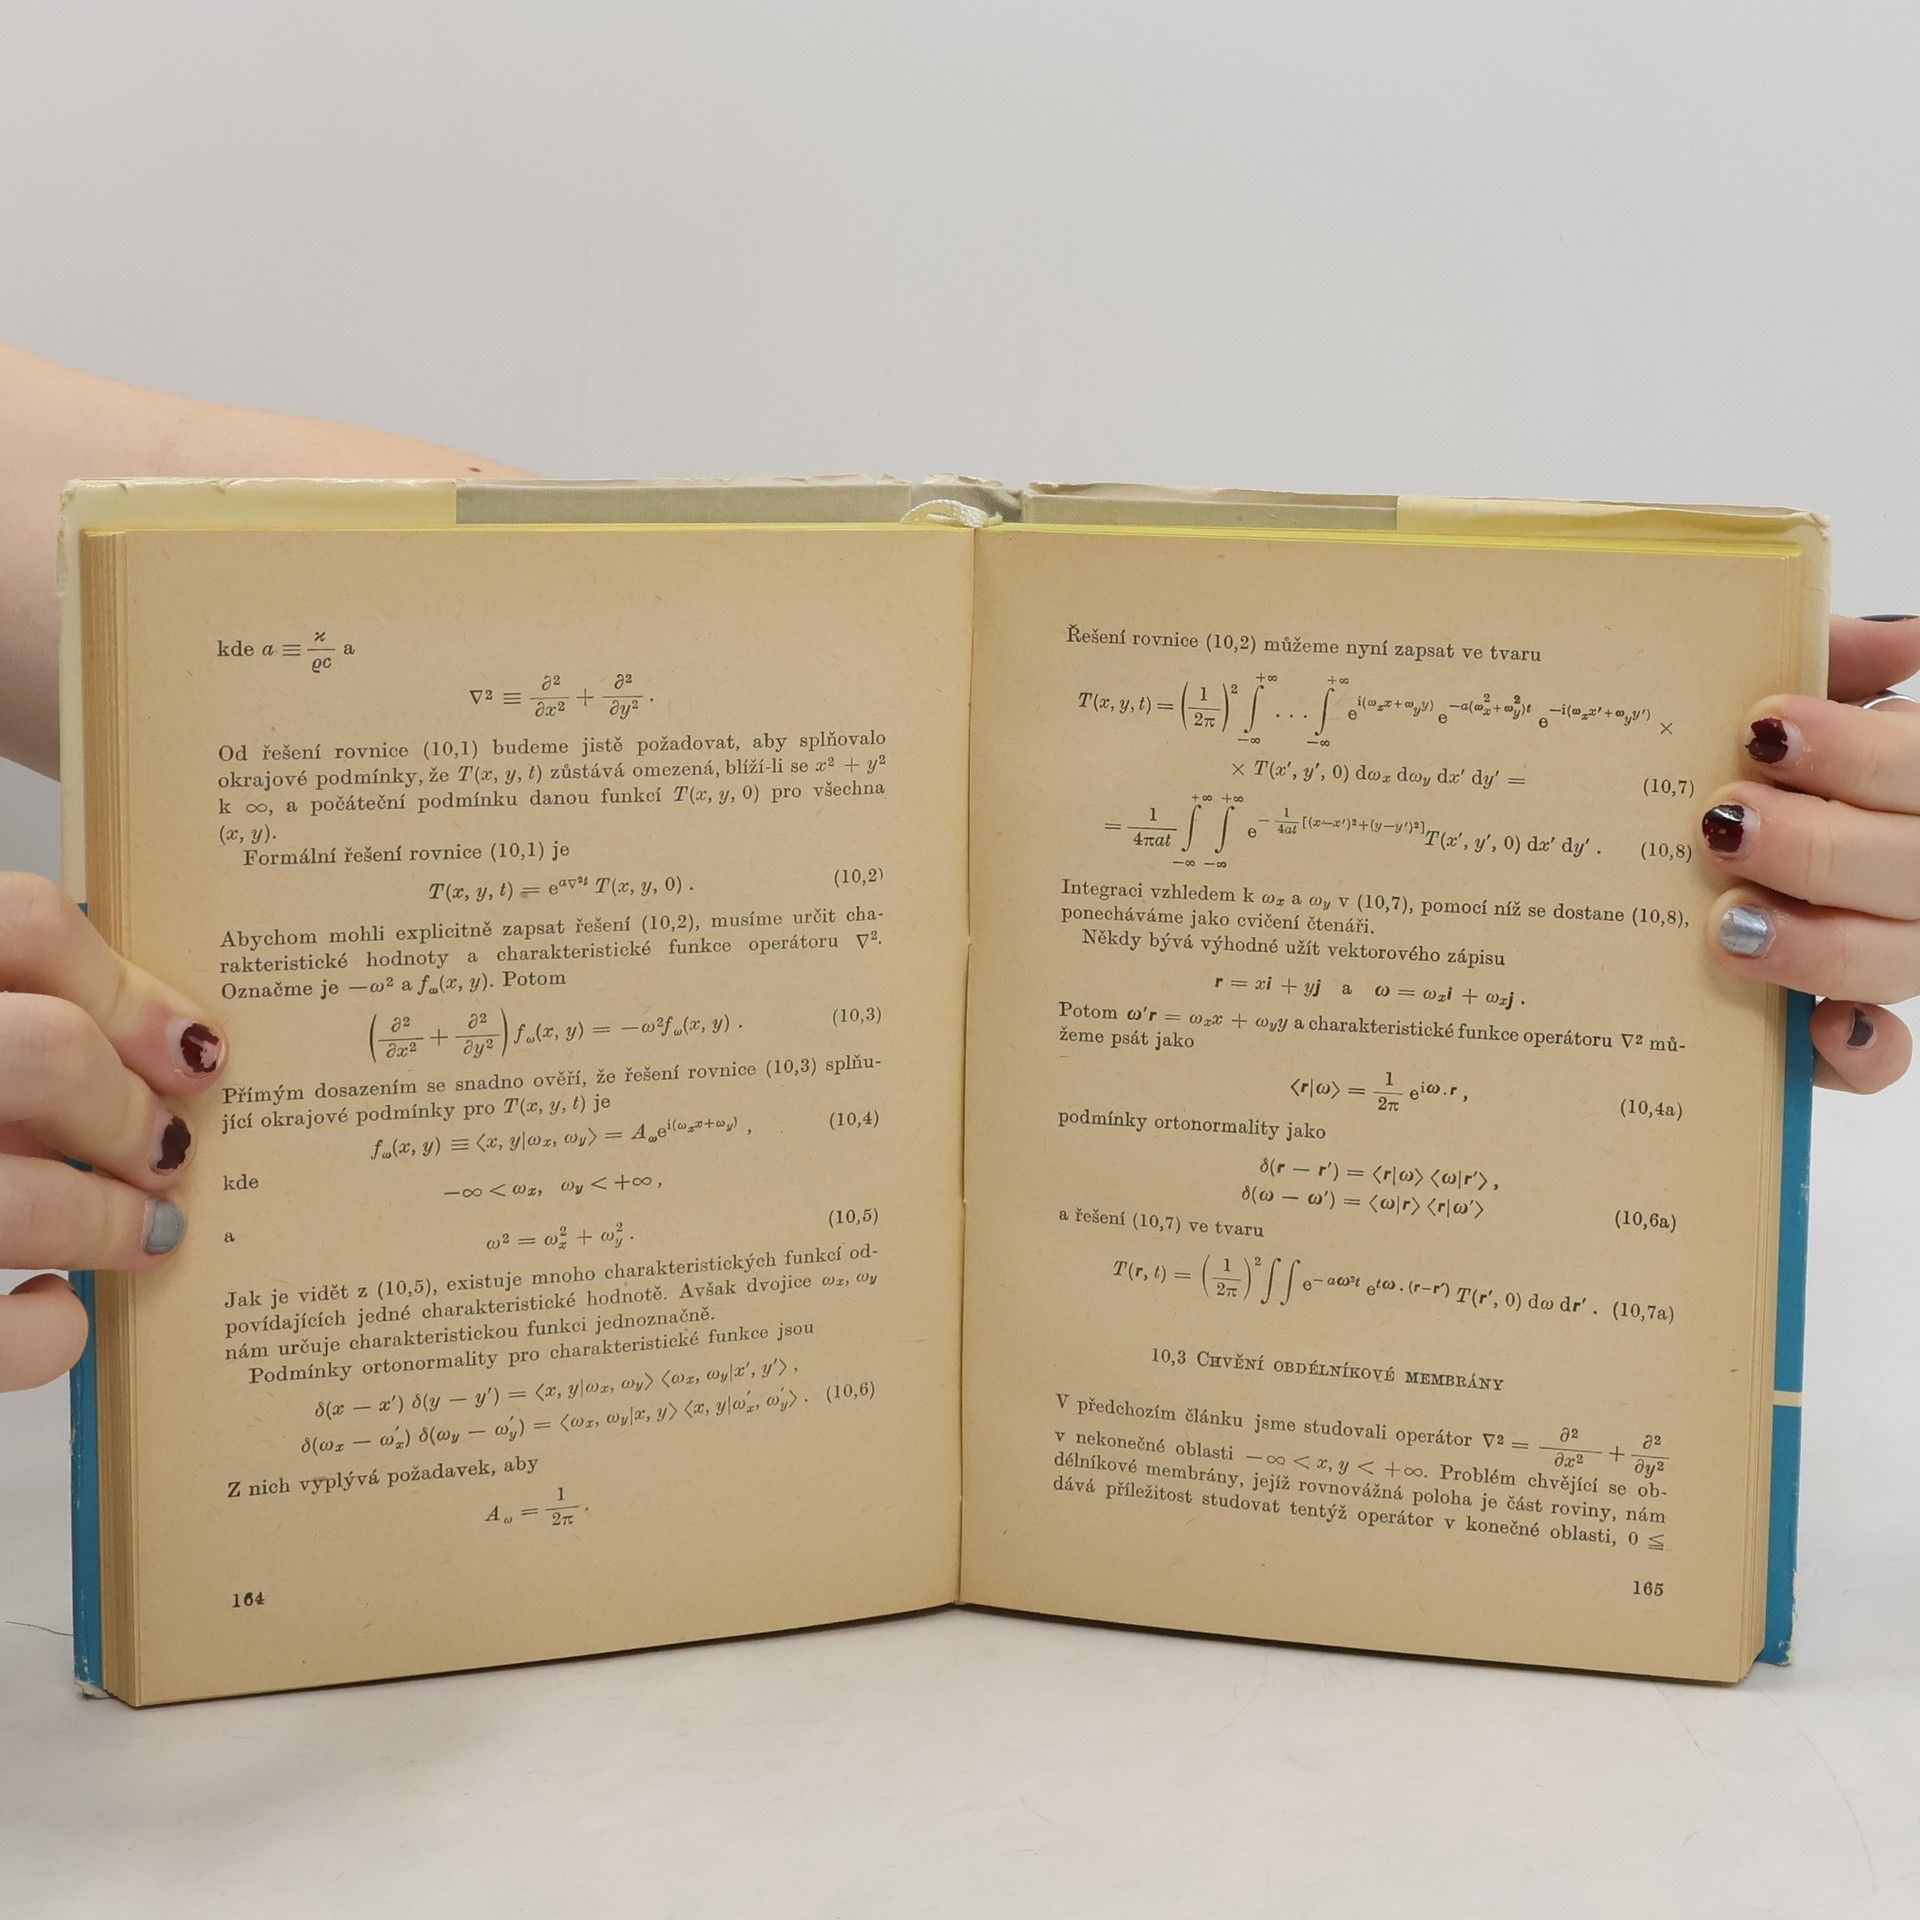 kde a ≡ ϰ/ϱc a
∇² ≡ ∂²/∂x² + ∂²/∂y² .
Od řešení rovnice (10,1) budeme jistě požadovat, aby splňovalo
okrajové podmínky, že T(x, y, t) zůstává omezená, blíží-li se x² + y²
k ∞, a počáteční podmínku danou funkcí T(x, y, 0) pro všechna
(x, y).
Formální řešení rovnice (10,1) je
T(x, y, t) = e^{a∇²t} T(x, y, 0) . (10,2)
Abychom mohli explicitně zapsat řešení (10,2), musíme určit cha-
rakteristické hodnoty a charakteristické funkce operátoru ∇².
Označme je —ω² a f_ω(x, y). Potom
(∂²/∂x² + ∂²/∂y²) f_ω(x, y) = —ω²f_ω(x, y) . (10,3)
Přímým dosazením se snadno ověří, že řešení rovnice (10,3) splňu-
jící okrajové podmínky pro T(x, y, t) je
f_ω(x, y) ≡ ⟨x, y|ω_x, ω_y⟩ = A_ω e^{i(ω_x x+ω_y)} , (10,4)
kde
—∞ < ω_x, ω_y < +∞ ,
a
ω² = ω_x² + ω_y² . (10,5)
Jak je vidět z (10,5), existuje mnoho charakteristických funkcí od-
povídajících jedné charakteristické hodnotě. Avšak dvojice ω_x, ω_y
nám určuje charakteristickou funkci jednoznačně.
Podmínky ortonormality pro charakteristické funkce jsou
δ(x — x′) δ(y — y′) = ⟨x, y|ω_x, ω_y⟩ ⟨ω_x, ω_y|x′, y′⟩ ,
δ(ω_x — ω′_x) δ(ω_y — ω′_y) = ⟨ω_x, ω_y|x, y⟩ ⟨x, y|ω′_x, ω′_y⟩ . (10,6)
Z nich vyplývá požadavek, aby
A_ω = 1/2π .
164
Řešení rovnice (10,2) můžeme nyní zapsat ve tvaru
T(x, y, t) = (1/2π)² ∫_{—∞}^{+∞} . . . ∫_{—∞}^{+∞} e^{i(ω_x x+ω_y y)} e^{—a(ω_x²+ω_y²)t} e^{—i(ω_x x′+ω_y y′)} ×
× T(x′, y′, 0) dω_x dω_y dx′ dy′ = (10,7)
= 1/4πat ∫_{—∞}^{+∞} ∫_{—∞}^{+∞} e^{— 1/4at [(x—x′)²+(y—y′)²]} T(x′, y′, 0) dx′ dy′ . (10,8)
Integraci vzhledem k ω_x a ω_y v (10,7), pomocí níž se dostane (10,8),
ponecháváme jako cvičení čtenáři.
Někdy bývá výhodné užít vektorového zápisu
r = xi + yj a ω = ω_x i + ω_x j .
Potom ω′r = ω_x x + ω_y y a charakteristické funkce operátoru ∇² mů-
žeme psát jako
⟨r|ω⟩ = 1/2π e^{iω.r} , (10,4a)
podmínky ortonormality jako
δ(r — r′) = ⟨r|ω⟩ ⟨ω|r′⟩ ,
δ(ω — ω′) = ⟨ω|r⟩ ⟨r|ω′⟩ (10,6a)
a řešení (10,7) ve tvaru
T(r, t) = (1/2π)² ∫∫ e^{—aω²t} e^{iω.(r—r′)} T(r′, 0) dω dr′ . (10,7a)
10,3 CHVĚNÍ OBDÉLNÍKOVÉ MEMBRÁNY
V předchozím článku jsme studovali operátor ∇² = ∂²/∂x² + ∂²/∂y²
v nekonečné oblasti —∞ < x, y < +∞. Problém chvějící se ob-
délníkové membrány, jejíž rovnovážná poloha je část roviny, nám
dává příležitost studovat tentýž operátor v konečné oblasti, 0 ≦
165